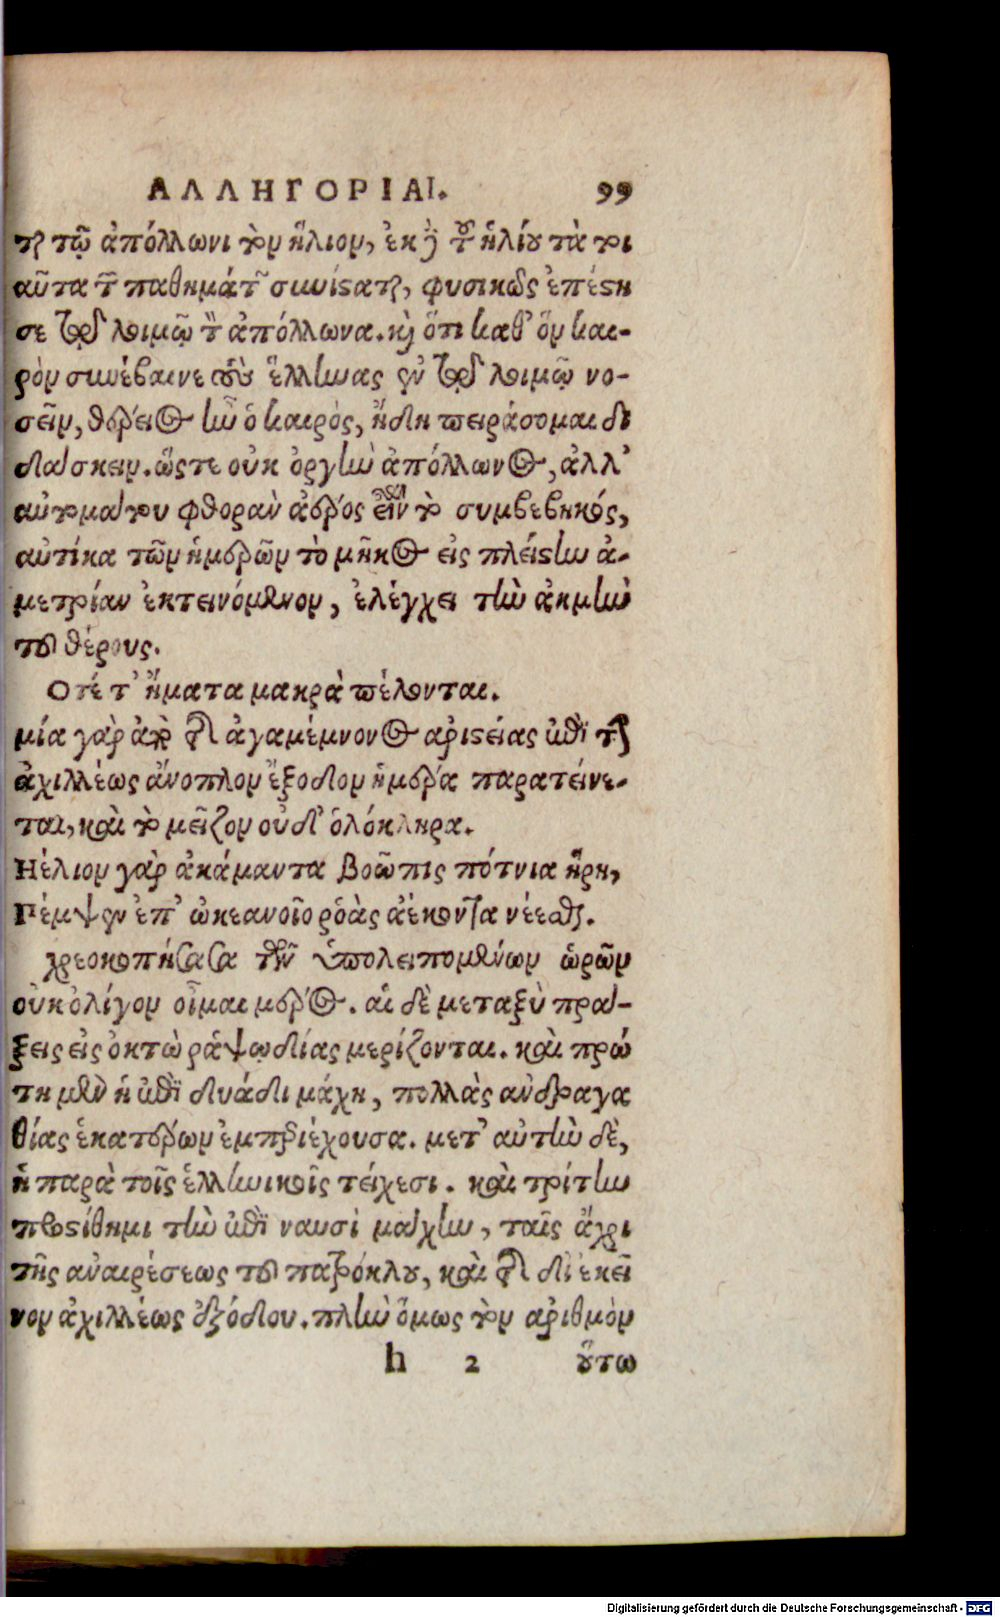 ΑΛΛΗΓΟΡΙΑΙ. 99
ται τῷ ἀπόλλωνι τὸν ἥλιον, ἐκ δὲ τοῦ ἡλίου τὰ τοι
αῦτα τῶν παθημάτων συνίσταται, φυσικῶς ἐπέστη
σε τῷ λοιμῷ τὸν ἀπόλλωνα. καὶ ὅτι καθ’ ὃν και-
ρὸν συνέβαινε τοὺς ἕλληνας ἐν τῷ λοιμῷ νο-
σεῖν, θέρειος ἦν ὁ καιρὸς, ἤδη πειράσομαι δι
δάσκειν. ὥστε οὐκ ὀργὴν ἀπόλλωνος, ἀλλ’
αὐτομάτου φθορὰν ἀέρος εἶναι τὸ συμβεβηκός,
αὐτίκα τῶν ἡμερῶν τὸ μῆκος εἰς πλείστην ἀ-
μετρίαν ἐκτεινόμενον, ἐλέγχει τὴν ἀκμὴν
τοῦ θέρους.
Οτέ τ’ ἤματα μακρὰ πέλονται.
μία γὰρ ἀπὸ τῆς ἀγαμέμνονος ἀριστείας ἐπὶ τὴν
ἀχιλλέως ἄνοπλον ἔξοδον ἡμέρα παρατείνε-
ται, καὶ τὸ μεῖζον οὐδ’ ὁλόκληρα.
Ηέλιον γὰρ ἀκάμαντα βοῶπις πότνια ἥρη,
Πέμψεν ἐπ’ ὠκεανοῖο ῥοὰς ἀέκοντα νέεσθαι.
χρεοκοπήσασα τῶν ὑπολειπομένων ὡρῶν
οὐκ ὀλίγον οἶμαι μέρος. αἱ δὲ μεταξὺ πρά-
ξεις εἰς ὀκτὼ ῥαψῳδίας μερίζονται. καὶ πρώ
τη μὲν ἡ ἐπὶ δυάδι μάχη, πολλὰς ἀνδραγα
θίας ἑκατέρων ἐμπεριέχουσα. μετ’ αὐτὴν δὲ,
ἡ παρὰ τοῖς ἑλληνικοῖς τείχεσι. καὶ τρίτην
προστίθημι τὴν ἐπὶ ναυσὶ μάχην, ταῖς ἄχρι
τῆς ἀναιρέσεως τοῦ πατρόκλου, καὶ τῆς δι’ ἐκεῖ
νον ἀχιλλέως ἐξόδου. πλὴν ὅμως τὸν ἀριθμὸν
h 2 οὕτω
Digitalisierung gefördert durch die Deutsche Forschungsgemeinschaft - DFG